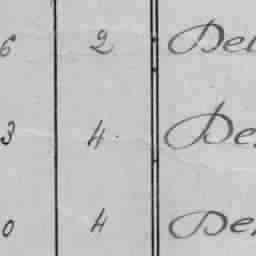 6 2 Del
3 4. De
0 4 De